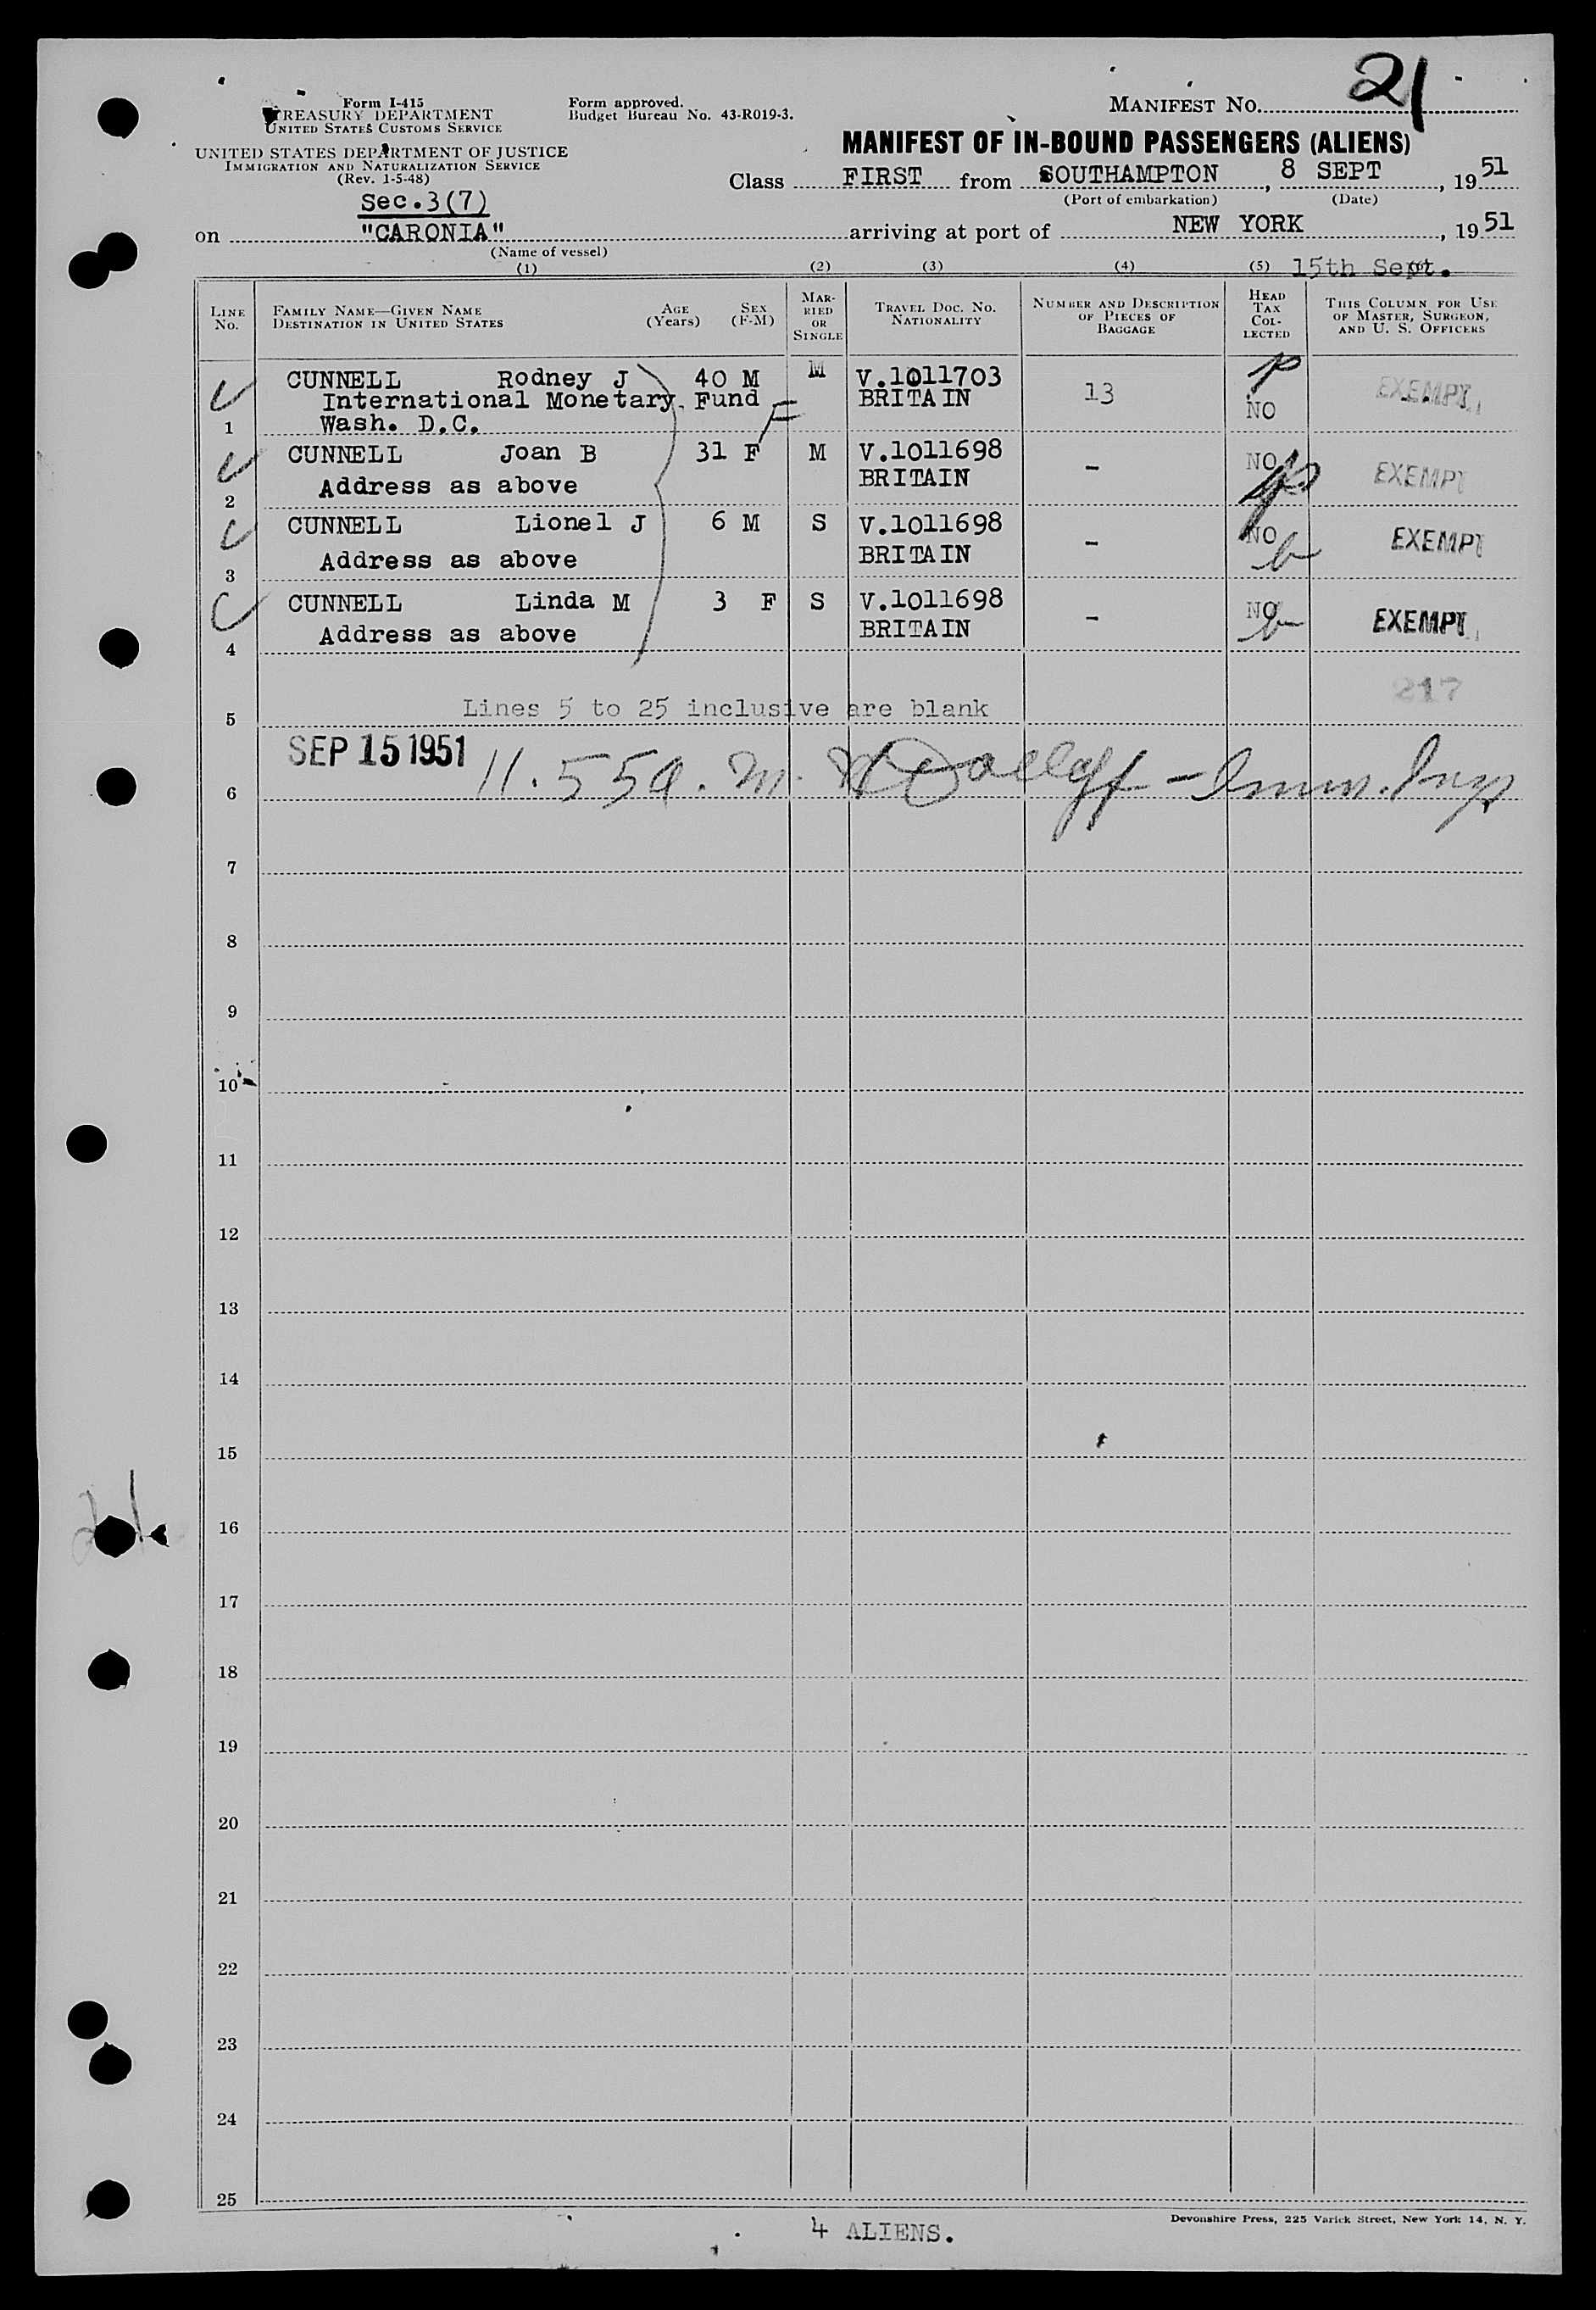 Form I-415
TREASURY DEPARTMENT
UNITED STATES CUSTOMS SERVICE
UNITED STATES DEPARTMENT OF JUSTICE
IMMIGRATION AND NATURALIZATION SERVICE
(Rev. 1-5-48)
Form approved.
Budget Bureau No. 43-R019-3.
MANIFEST NO. 21
MANIFEST OF IN-BOUND PASSENGERS (ALIENS)
Class FIRST from SOUTHAMPTON, 8 SEPT, 1951
(Port of embarkation) (Date)
Sec.3(7)
on "CARONIA" arriving at port of NEW YORK, 1951
(Name of vessel)
(1) (2) (3) (4) (5) 15th Sept.
LINE No. FAMILY NAME—GIVEN NAME DESTINATION IN UNITED STATES AGE (Years) SEX (F-M) MARRIED OR SINGLE TRAVEL DOC. NO. NATIONALITY NUMBER AND DESCRIPTION OF PIECES OF BAGGAGE HEAD TAX COLLECTED THIS COLUMN FOR USE OF MASTER, SURGEON, AND U. S. OFFICERS
CUNNELL Rodney J 40 M M V.1011703 13 EXEMPT
International Monetary Fund BRITAIN NO
1 Wash. D.C.
CUNNELL Joan B 31 F M V.1011698 - NO EXEMPT
2 Address as above BRITAIN
CUNNELL Lionel J 6 M S V.1011698 - NO EXEMPT
3 Address as above BRITAIN
CUNNELL Linda M 3 F S V.1011698 - NO EXEMPT
4 Address as above BRITAIN
217
5 Lines 5 to 25 inclusive are blank
SEP 15 1951 11.55 a.m. - Imm. Insp
6
7
8
9
10
11
12
13
14
15
21
16
17
18
19
20
21
22
23
24
25
Devonshire Press, 225 Varick Street, New York 14, N. Y.
4 ALIENS.